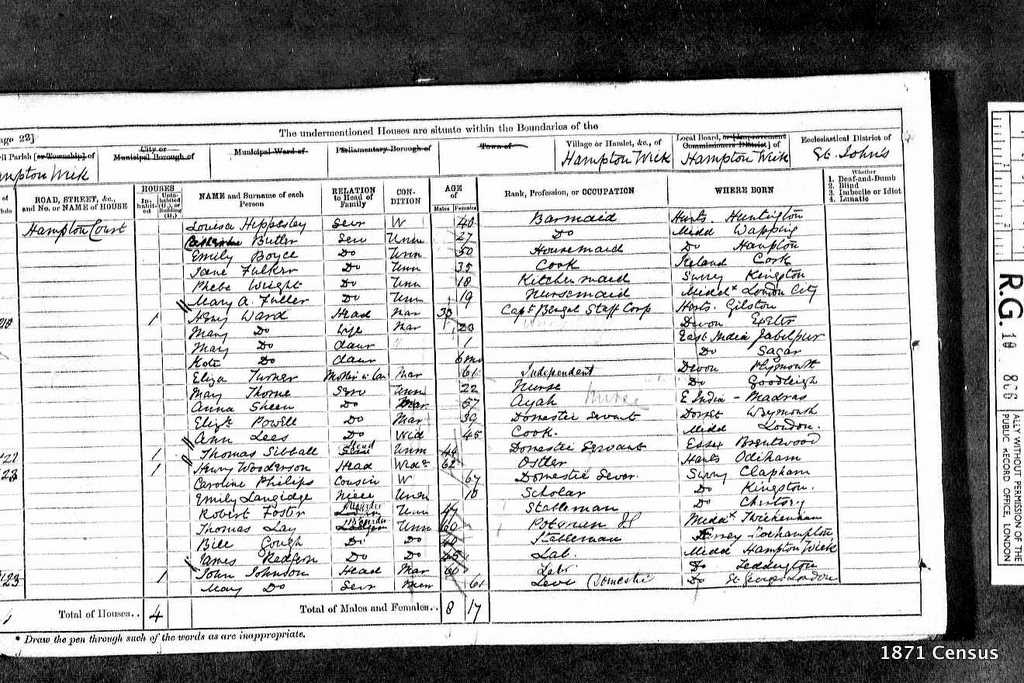 age 22]
The undermentioned Houses are situate within the Boundaries of the
il Parish [or Township] of
City or Municipal Borough of
Municipal Ward of
Parliamentary Borough of
Town of
Village or Hamlet, &c., of
Local Board, or [Improvement Commissioners District] of
Ecclesiastical District of
mpton Wick
Hampton Wick
Hampton Wick
St. John's
ROAD, STREET, &c., and No. or NAME of HOUSE
HOUSES
Inhabited
Uninhabited (U.), or Building (B.)
NAME and Surname of each Person
RELATION to Head of Family
CONDITION
AGE of
Males
Females
Rank, Profession, or OCCUPATION
WHERE BORN
Whether
1. Deaf-and-Dumb
2. Blind
3. Imbecile or Idiot
4. Lunatic
Hampton Court Louisa Hippesley Serv W 40 Barmaid Hunts Huntington
Butler Serv Unm 27 Do Midd Wapping
Emily Boyce Do Unm 50 Housemaid Do Hampton
Jane Fulker Do Unm 35 Cook Ireland Cork
Phebe Wright Do Unm 18 Kitchenmaid Surrey Kingston
Mary A. Fuller Do Unm 19 Nursemaid Middx London City
1 Henry Ward Head Mar Capt Bengal Staff Corp Herts. Gilston
Mary Do Wife Mar Devon Exeter
Mary Do Daur 1 East India Jabulpur
Kate Do Daur 6 mo Do Sagar
Eliza Turner Mother in Law Mar 61 Independent Devon Plymouth
May Thorne Serv Unm 22 Nurse Do Goodleigh
Anna Sheen Do 57 Ayah Nurse E India - Madras
Elizt Powell Do Mar 39 Domestic Servant Dorset Weymouth
Ann Lees Do Wid 45 Cook. Midd London.
1 Thomas Sibball Head Unm 44 Domestic Servant Essex Brentwood
23 1 Henry Wooderson Head Widr 62 Ostler Hants Odiham
Caroline Philips Cousin W 67 Domestic Serv. Surry Clapham
Emily Langidge Niece Unm 10 Scholar Do Kingston.
Robert Foster Unm 47 Stableman Do
Thomas Lay Unm 60 Middx Twickenham
Bill Gough Do Do Stableman Roehampton
James Redfern Do Do 45 Lab. Midd Hampton Wick
123 1 John Johnson Head Mar 60 Labr Do Teddington
Mary Do 61 Domestic Do St Georges London
Total of Houses.. 4
Total of Males and Females.. 8 17
* Draw the pen through such of the words as are inappropriate.
R.G. 10
866
ALLY WITHOUT PERMISSION OF THE
PUBLIC RECORD OFFICE, LONDON
1871 Census